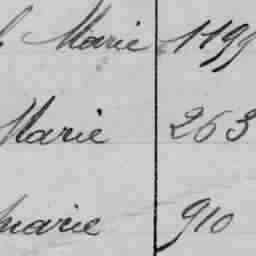 Marie 1199
Marie 263
marie 910